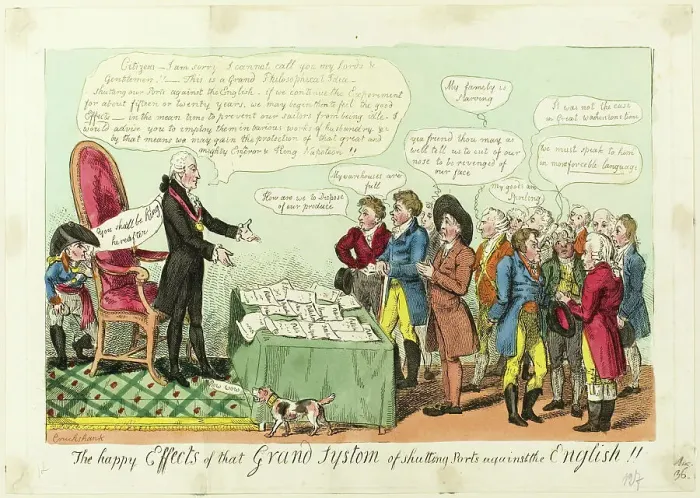 Citizens – I am sorry I cannot call you my Lords &
Gentlemen!! – This is a Grand Philosophical Idea –
shutting our Ports against the English – if we continue the Experiment
for about fifteen or twenty years, we may begin then to feel the good
Effects – in the mean time to prevent our sailors from being idle I
would advise you to employ them in various works of husbandry &c
by that means we may gain the protection of that great and
mighty Emperor & King Napoleon!!
You shall be King
hereafter
How are we to Dispose
of our produce
My warehouses are
full
My family is
starving
yea friend thou may as
well tell us to cut of our
nose to be revenged of
our face
My goods are
Spoiling
It was not the case
in Great washingtons time
we must speak to him
in more forceible language
Bow wow
Cruikshank
The happy Effects of that Grand System of shutting Ports against the English!!
36.